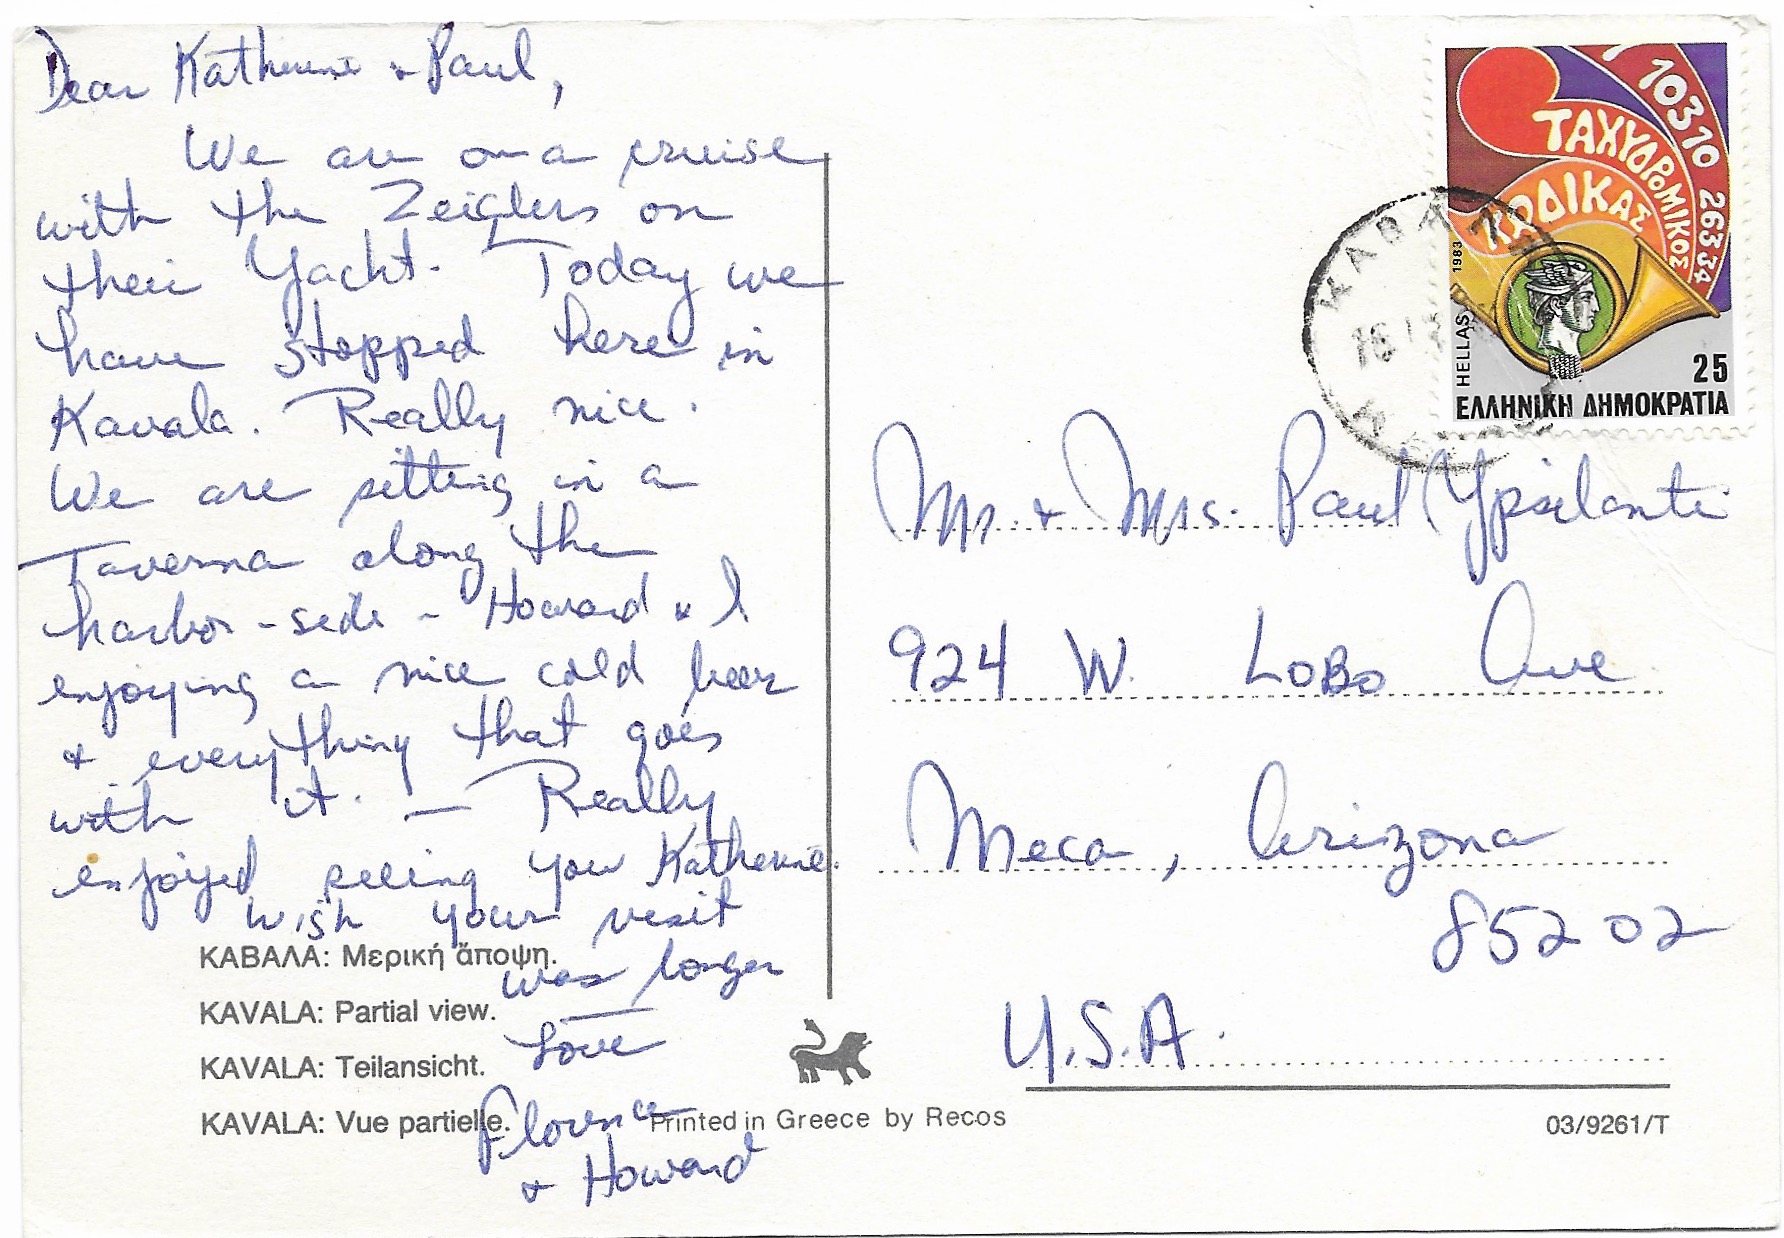 Dear Katherine & Paul,
We are on a cruise
with the Zeiglers on
their Yacht. Today we
have stopped here in
Kavala. Really nice.
We are sitting in a
Taverna along the
harbor-side - Howard & I
enjoying a nice cold beer
& everything that goes
with it. — Really
enjoyed seeing you Katherine.
Wish your visit
was longer
Love
Florence
& Howard
ΚΑΒΑΛΑ: Μερική ἄποψη.
KAVALA: Partial view.
KAVALA: Teilansicht.
KAVALA: Vue partielle.
Printed in Greece by Recos
03/9261/T
10310 26334
ΤΑΧΥΔΡΟΜΙΚΟΣ
ΚΩΔΙΚΑΣ
1983
HELLAS
25
ΕΛΛΗΝΙΚΗ ΔΗΜΟΚΡΑΤΙΑ
Mr. & Mrs. Paul Ypsilanti
924 W. LOBO Ave
Meca, Arizona
85202
U.S.A.